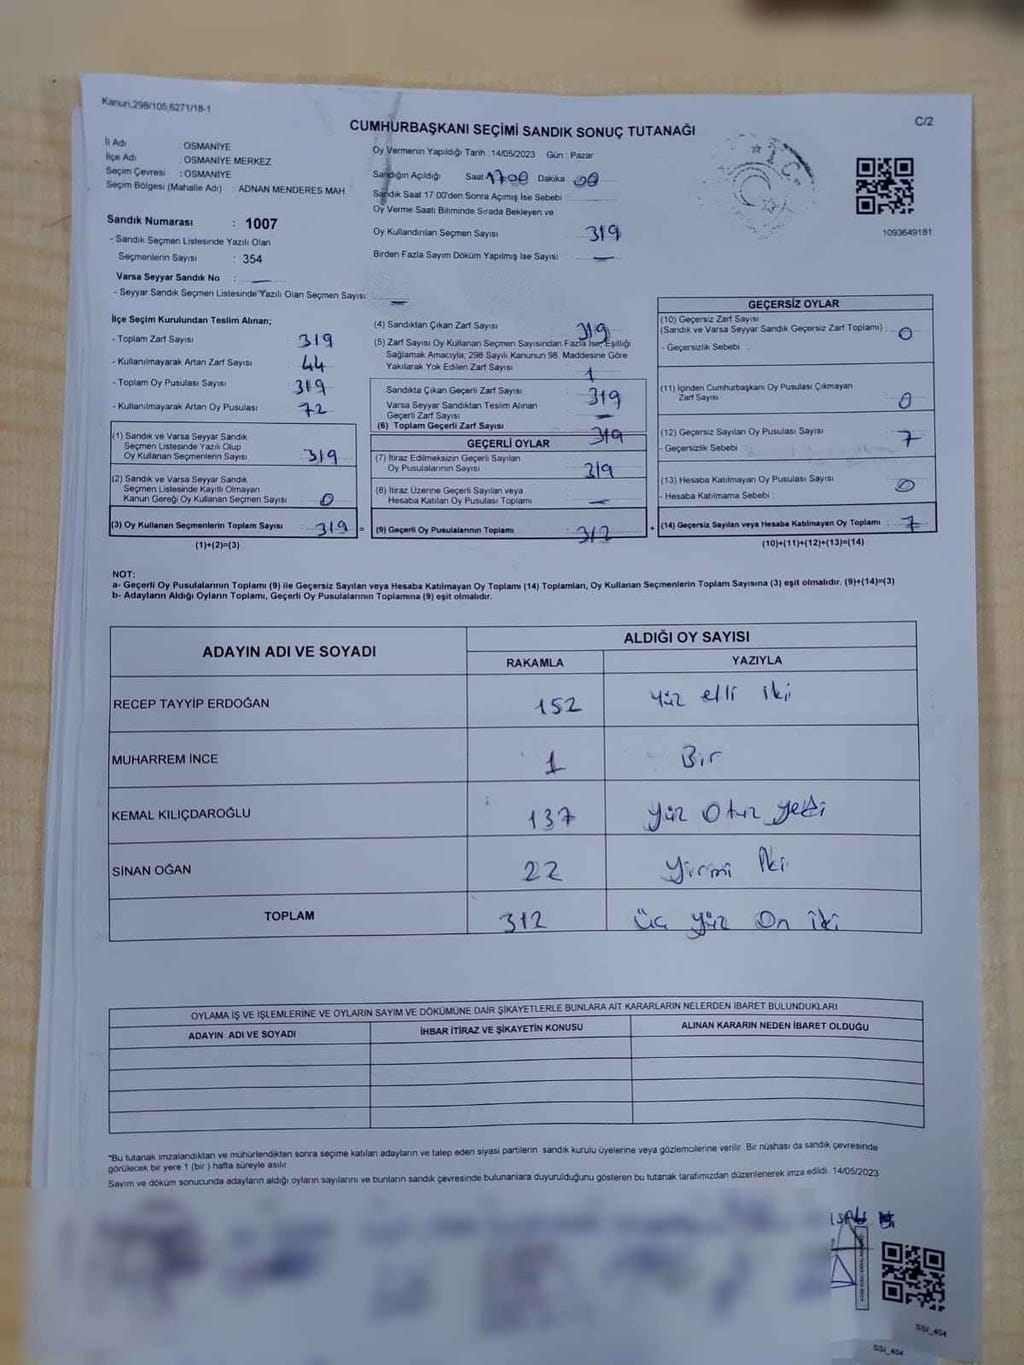 Kanun,298/105,6271/18-1
C/2
CUMHURBAŞKANI SEÇİMİ SANDIK SONUÇ TUTANAĞI
İl Adı : OSMANİYE
İlçe Adı : OSMANİYE MERKEZ
Seçim Çevresi : OSMANİYE
Seçim Bölgesi (Mahalle Adı) : ADNAN MENDERES MAH.
Sandık Numarası : 1007
- Sandık Seçmen Listesinde Yazılı Olan
Seçmenlerin Sayısı : 354
Varsa Seyyar Sandık No : —
- Seyyar Sandık Seçmen Listesinde Yazılı Olan Seçmen Sayısı: —
Oy Vermenin Yapıldığı Tarih : 14/05/2023 Gün : Pazar
Sandığın Açıldığı Saat 1700 Dakika 00
Sandık Saat 17.00'den Sonra Açımış İse Sebebi
Oy Verme Saati Bitiminde Sırada Bekleyen ve
Oy Kullandırılan Seçmen Sayısı 319
Birden Fazla Sayım Döküm Yapılmış İse Sayısı —
1093649181
İlçe Seçim Kurulundan Teslim Alınan;
- Toplam Zarf Sayısı 319
- Kullanılmayarak Artan Zarf Sayısı 44
- Toplam Oy Pusulası Sayısı 319
- Kullanılmayarak Artan Oy Pusulası 72
(1) Sandık ve Varsa Seyyar Sandık
Seçmen Listesinde Yazılı Olup
Oy Kullanan Seçmenlerin Sayısı : 319
(2) Sandık ve Varsa Seyyar Sandık
Seçmen Listesinde Kayıtlı Olmayan
Kanun Gereği Oy Kullanan Seçmen Sayısı : 0
(3) Oy Kullanan Seçmenlerin Toplam Sayısı : 319 =
(1)+(2)=(3)
(4) Sandıktan Çıkan Zarf Sayısı 319
(5) Zarf Sayısı Oy Kullanan Seçmen Sayısından Fazla İse, Eşitliği
Sağlamak Amacıyla; 298 Sayılı Kanunun 98. Maddesine Göre
Yakılarak Yok Edilen Zarf Sayısı 1
Sandıkta Çıkan Geçerli Zarf Sayısı 319
Varsa Seyyar Sandıktan Teslim Alınan
Geçerli Zarf Sayısı —
(6) Toplam Geçerli Zarf Sayısı 319
GEÇERLİ OYLAR
(7) İtiraz Edilmeksizin Geçerli Sayılan
Oy Pusulalarının Sayısı : 319
(8) İtiraz Üzerine Geçerli Sayılan veya
Hesaba Katılan Oy Pusulası Toplamı : —
(9) Geçerli Oy Pusulalarının Toplamı : 312 +
GEÇERSİZ OYLAR
(10) Geçersiz Zarf Sayısı
(Sandık ve Varsa Seyyar Sandık Geçersiz Zarf Toplamı) : 0
- Geçersizlik Sebebi :
(11) İçinden Cumhurbaşkanı Oy Pusulası Çıkmayan
Zarf Sayısı : 0
(12) Geçersiz Sayılan Oy Pusulası Sayısı : 7
- Geçersizlik Sebebi
(13) Hesaba Katılmayan Oy Pusulası Sayısı : 0
- Hesaba Katılmama Sebebi :
(14) Geçersiz Sayılan veya Hesaba Katılmayan Oy Toplamı : 7
(10)+(11)+(12)+(13)=(14)
NOT:
a- Geçerli Oy Pusulalarının Toplamı (9) ile Geçersiz Sayılan veya Hesaba Katılmayan Oy Toplamı (14) Toplamları, Oy Kullanan Seçmenlerin Toplam Sayısına (3) eşit olmalıdır. (9)+(14)=(3)
b- Adayların Aldığı Oyların Toplamı, Geçerli Oy Pusulalarının Toplamına (9) eşit olmalıdır.
ADAYIN ADI VE SOYADI ALDIĞI OY SAYISI
RAKAMLA YAZIYLA
RECEP TAYYİP ERDOĞAN 152 Yüz elli iki
MUHARREM İNCE 1 Bir
KEMAL KILIÇDAROĞLU 137 Yüz Otuz yedi
SİNAN OĞAN 22 Yirmi İki
TOPLAM 312 Üç yüz On iki
OYLAMA İŞ VE İŞLEMLERİNE VE OYLARIN SAYIM VE DÖKÜMÜNE DAİR ŞİKAYETLERLE BUNLARA AİT KARARLARIN NELERDEN İBARET BULUNDUKLARI
ADAYIN ADI VE SOYADI İHBAR İTİRAZ VE ŞİKAYETİN KONUSU ALINAN KARARIN NEDEN İBARET OLDUĞU
*Bu tutanak imzalandıktan ve mühürlendikten sonra seçime katılan adayların ve talep eden siyasi partilerin sandık kurulu üyelerine veya gözlemcilerine verilir. Bir nüshası da sandık çevresinde
görülecek bir yere 1 (bir ) hafta süreyle asılır.
Sayım ve döküm sonucunda adayların aldığı oyların sayılarını ve bunların sandık çevresinde bulunanlara duyurulduğunu gösteren bu tutanak tarafımızdan düzenlenerek imza edildi. 14/05/2023
SSI_404
SSI_404